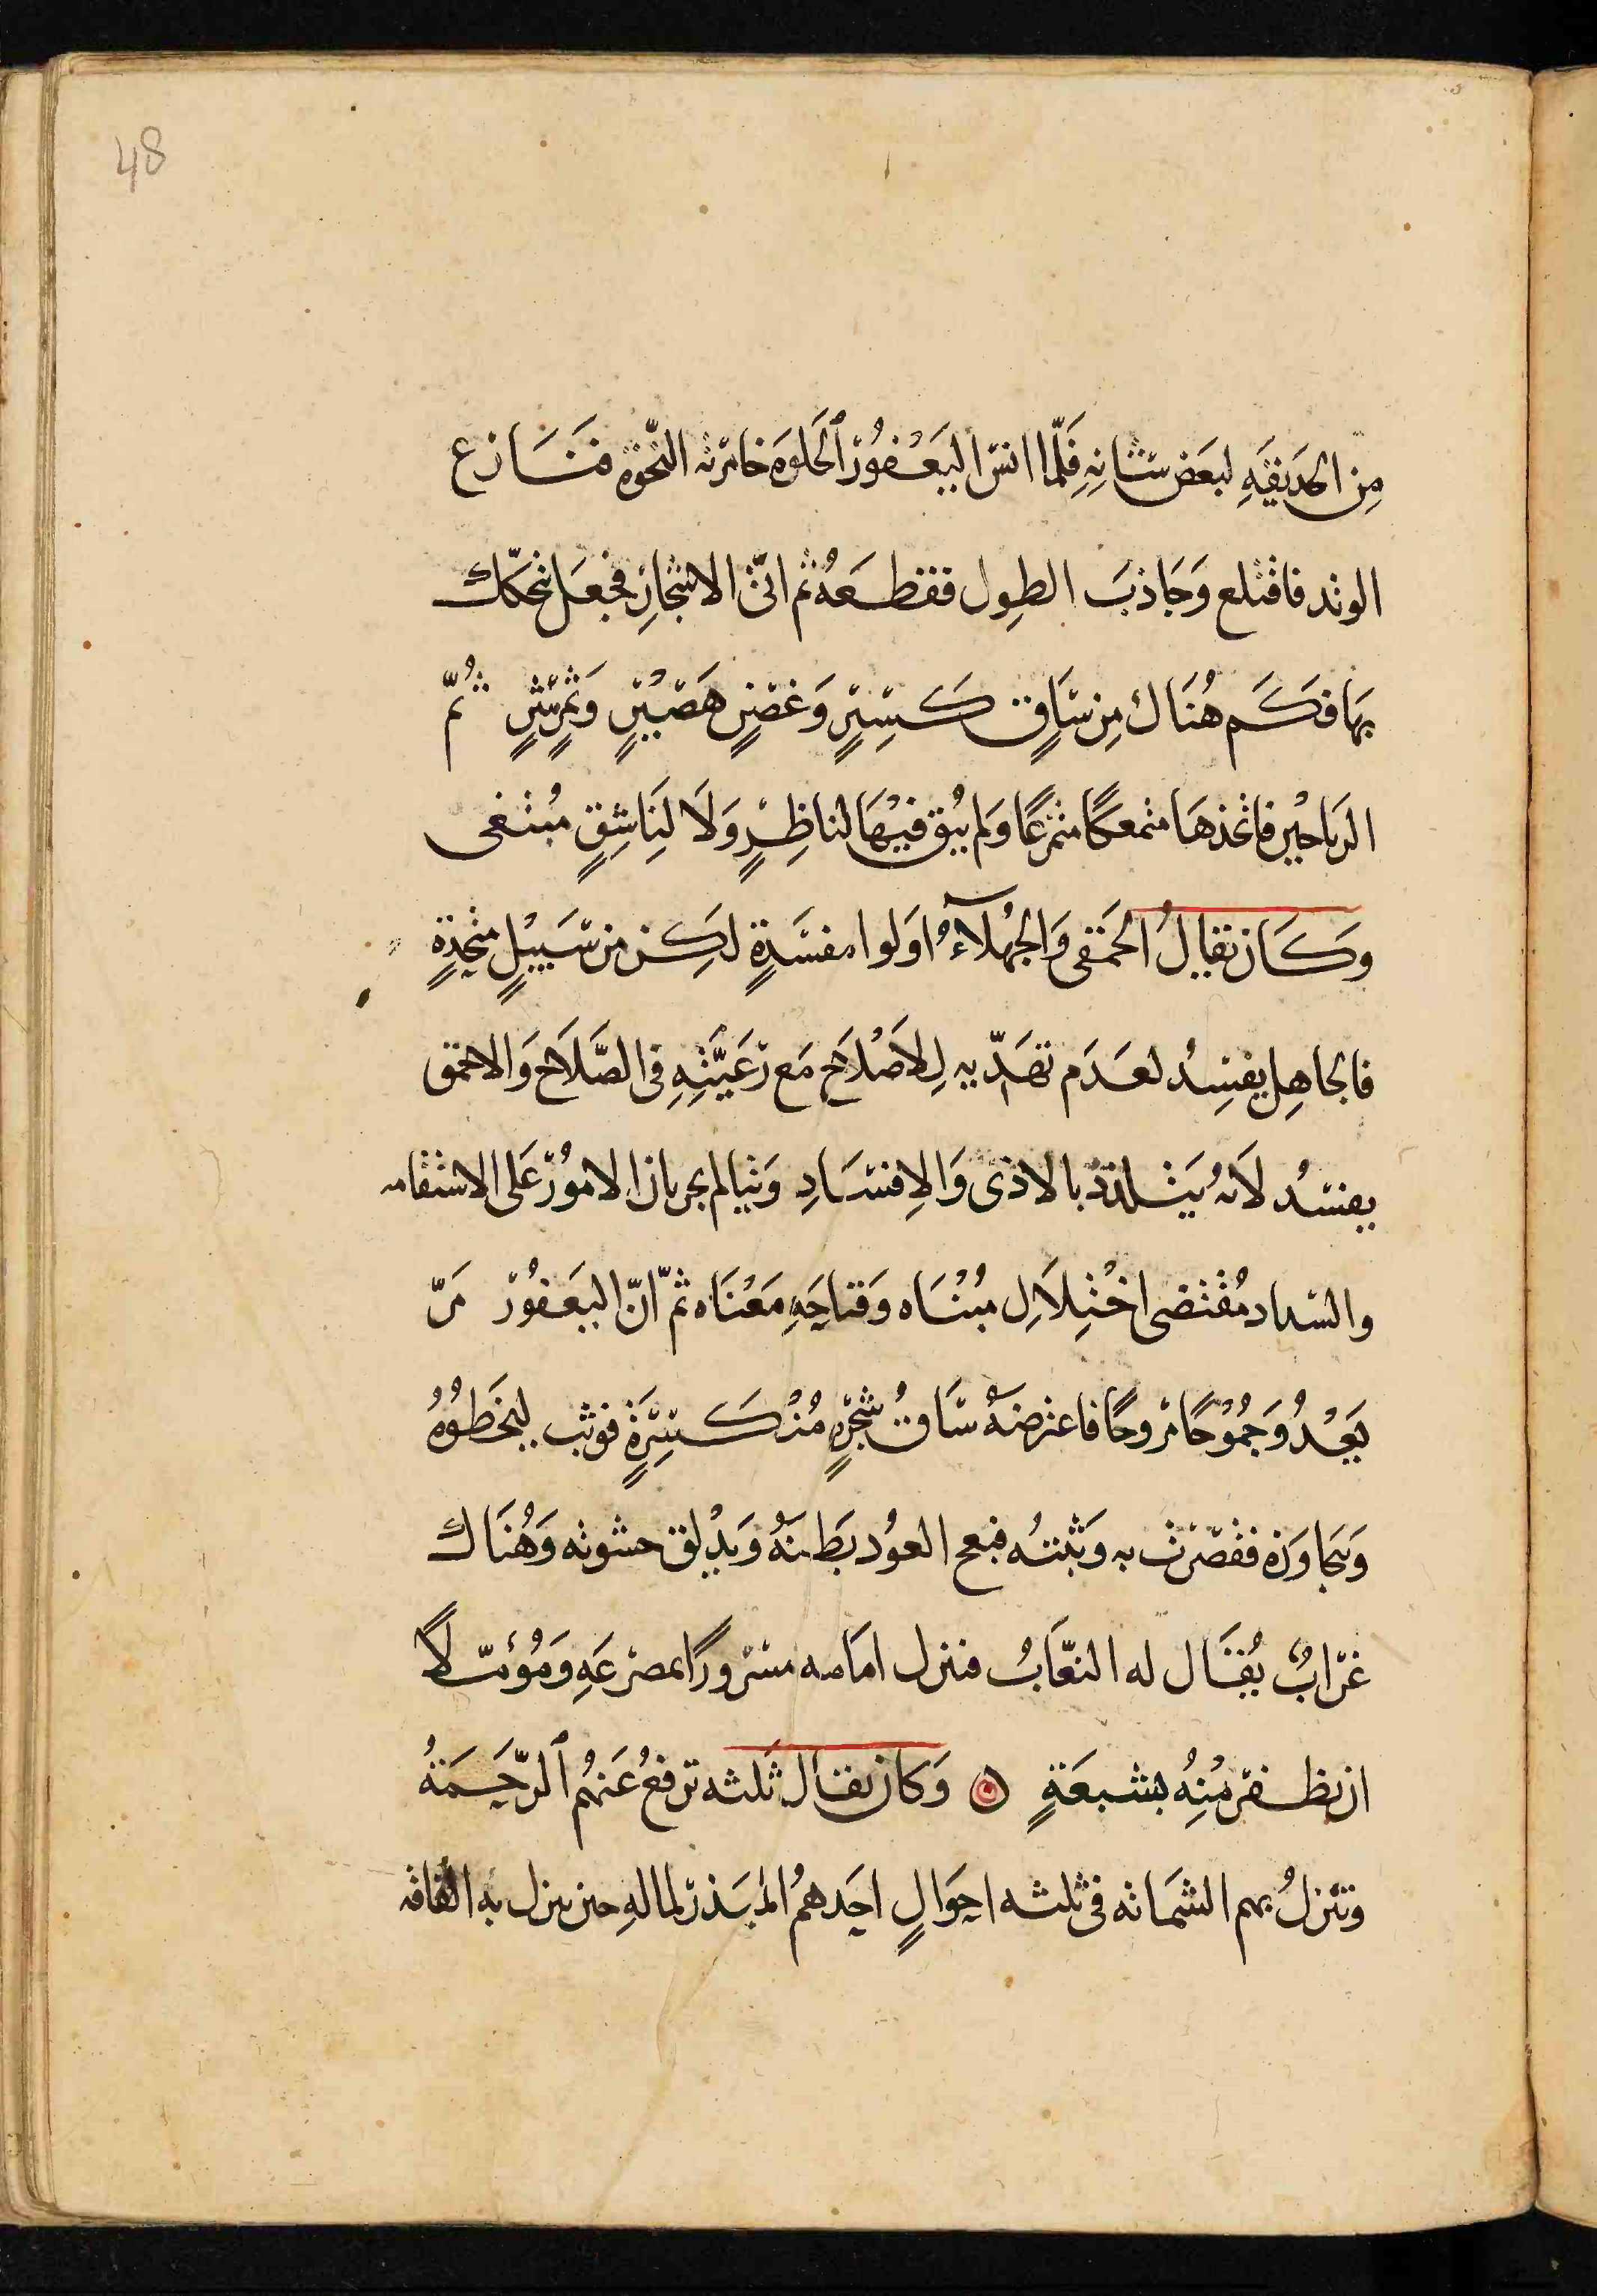 48
مِن الحَدِيقَةِ لبَعَض شَانِهِ فَلَّما انسَ اليَعْفوُرُ اَلخَلوَه خامَرته النّخوَة فنَازع
الوتد فاقتلع وَجَاذبَ الطِول فقطَعهُ ثم اتىَ الاشجَارَ فجعَل يتحكّك
بهَا فكَم هُنَاك مِن سَاقٍ كَسِيرٍ وَغصْنٍ هَصْيرٍ وَثمرٍ ثُمّ
الرَيَاحْين فاتخذهَا متمعكًا متمرغًا وَلم يُبق فيْهَا لنَاظِرٍ وَلاَ لنَاشِقٍ مُبتغى
وَكَان يقالُ الحَمقى وَالجُهلآءُ اوَلوا مفسَدةٍ لكِن من سَبيْلٍ متحدةٍ
فالجاهِل يفسِدُ لعَدَم تهَدّيه لِلاصْلاَح مَع رَغبَتِهِ في الصَّلاَح وَالاحمق
يفسدُ لاَنهُ يَتلذذ بالاذى وَالاِفسَادِ وَيتالم بجريان الامُورُ عَلى الاستقامه
والسّداد مُقتضى اخْتِلاَلِ مبُنْاه وَقباحَهِ مَعْنَاه ثمّ انّ اليَعفوُرَ مَرّ
يَعْدُو جَمُوْحًا مَروحًا فاعترضهُ سَاقُ شجَرَةٍ مُنْكَسِرَةٍ فوثب ليَخَطوُهُ
وَيتجَاوَزه فقصّرَت به وَثبَتُه فبعج العوُد بَطنَهُ وَيدْلق حشوته وَهُنَاك
غرَابٌ يُقَال له النعّابُ فنزل امَامه مسَرورًا بمصرعَهِ وَمُؤمّلاً
ان يظفرمنِهُ بشبعَةٍ وَكان يقال ثلثه ترفعُ عَنهُم اَلرّحَمَةُ
وَتنزلُ بهم الشمَاته في ثلثه احوَالٍ احَدهمُ المبَذر لمالهِ حين ينزل به الفاقه